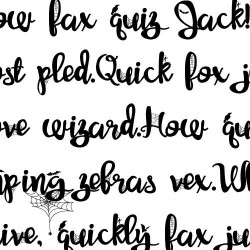 ow fax quiz Jack!
ost pled.Quick fox j
ove wizard.How qu
ping zebras vex.Wh
ive, quickly fax ju